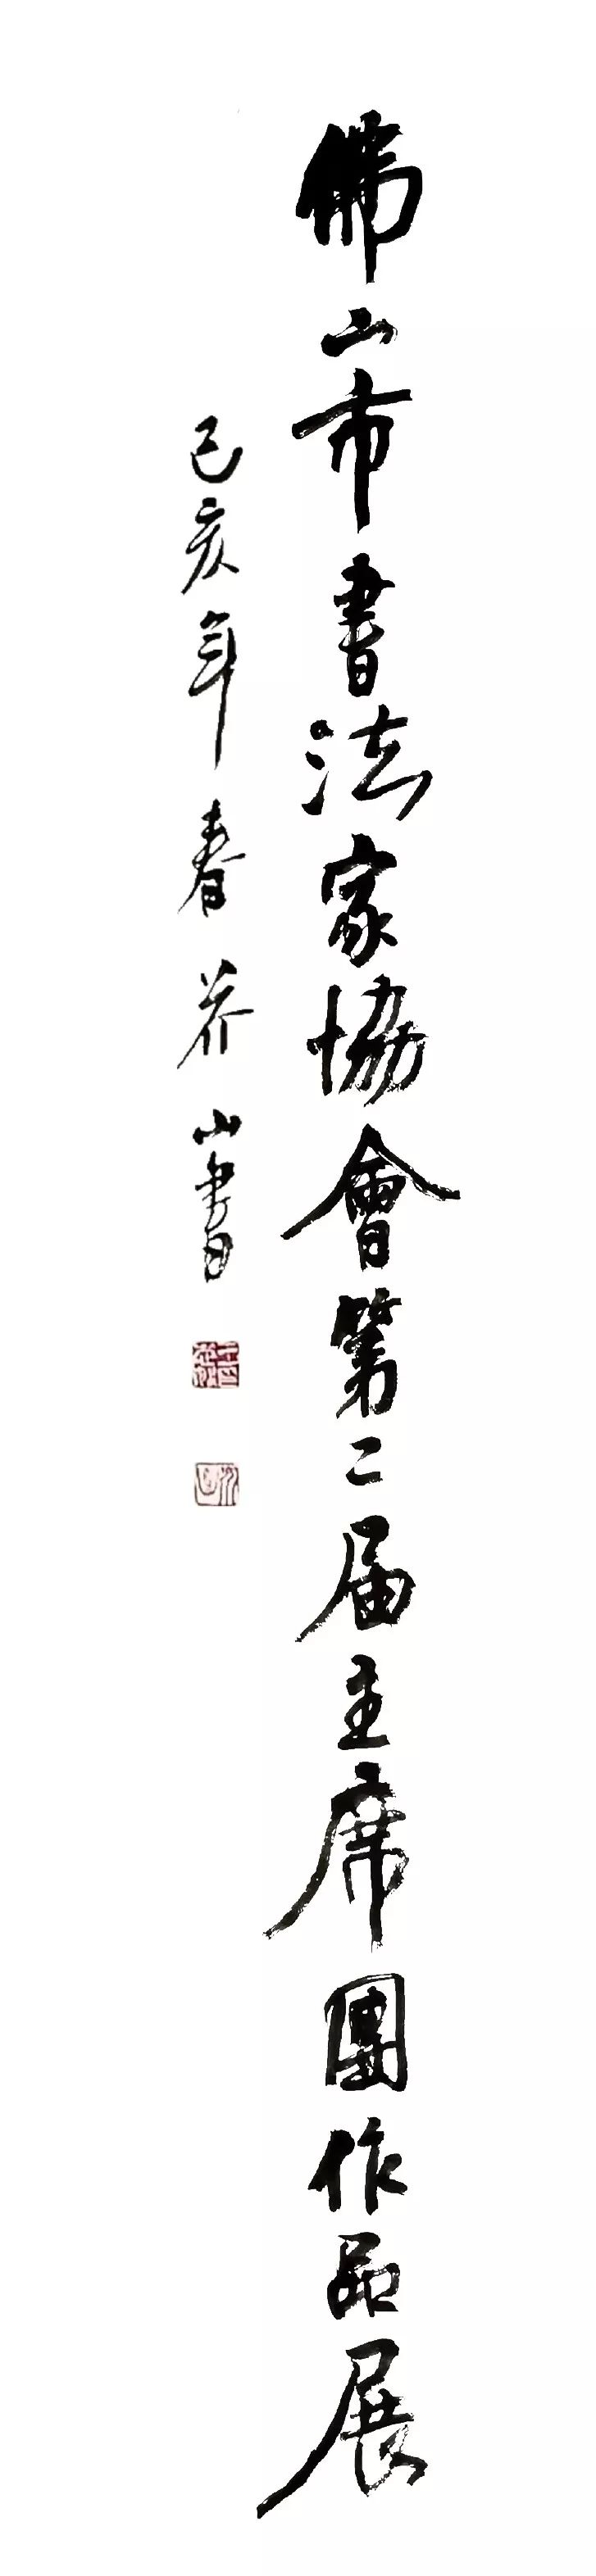 佛山市書法家協會第二届主席團作品展
己亥年春芥山書